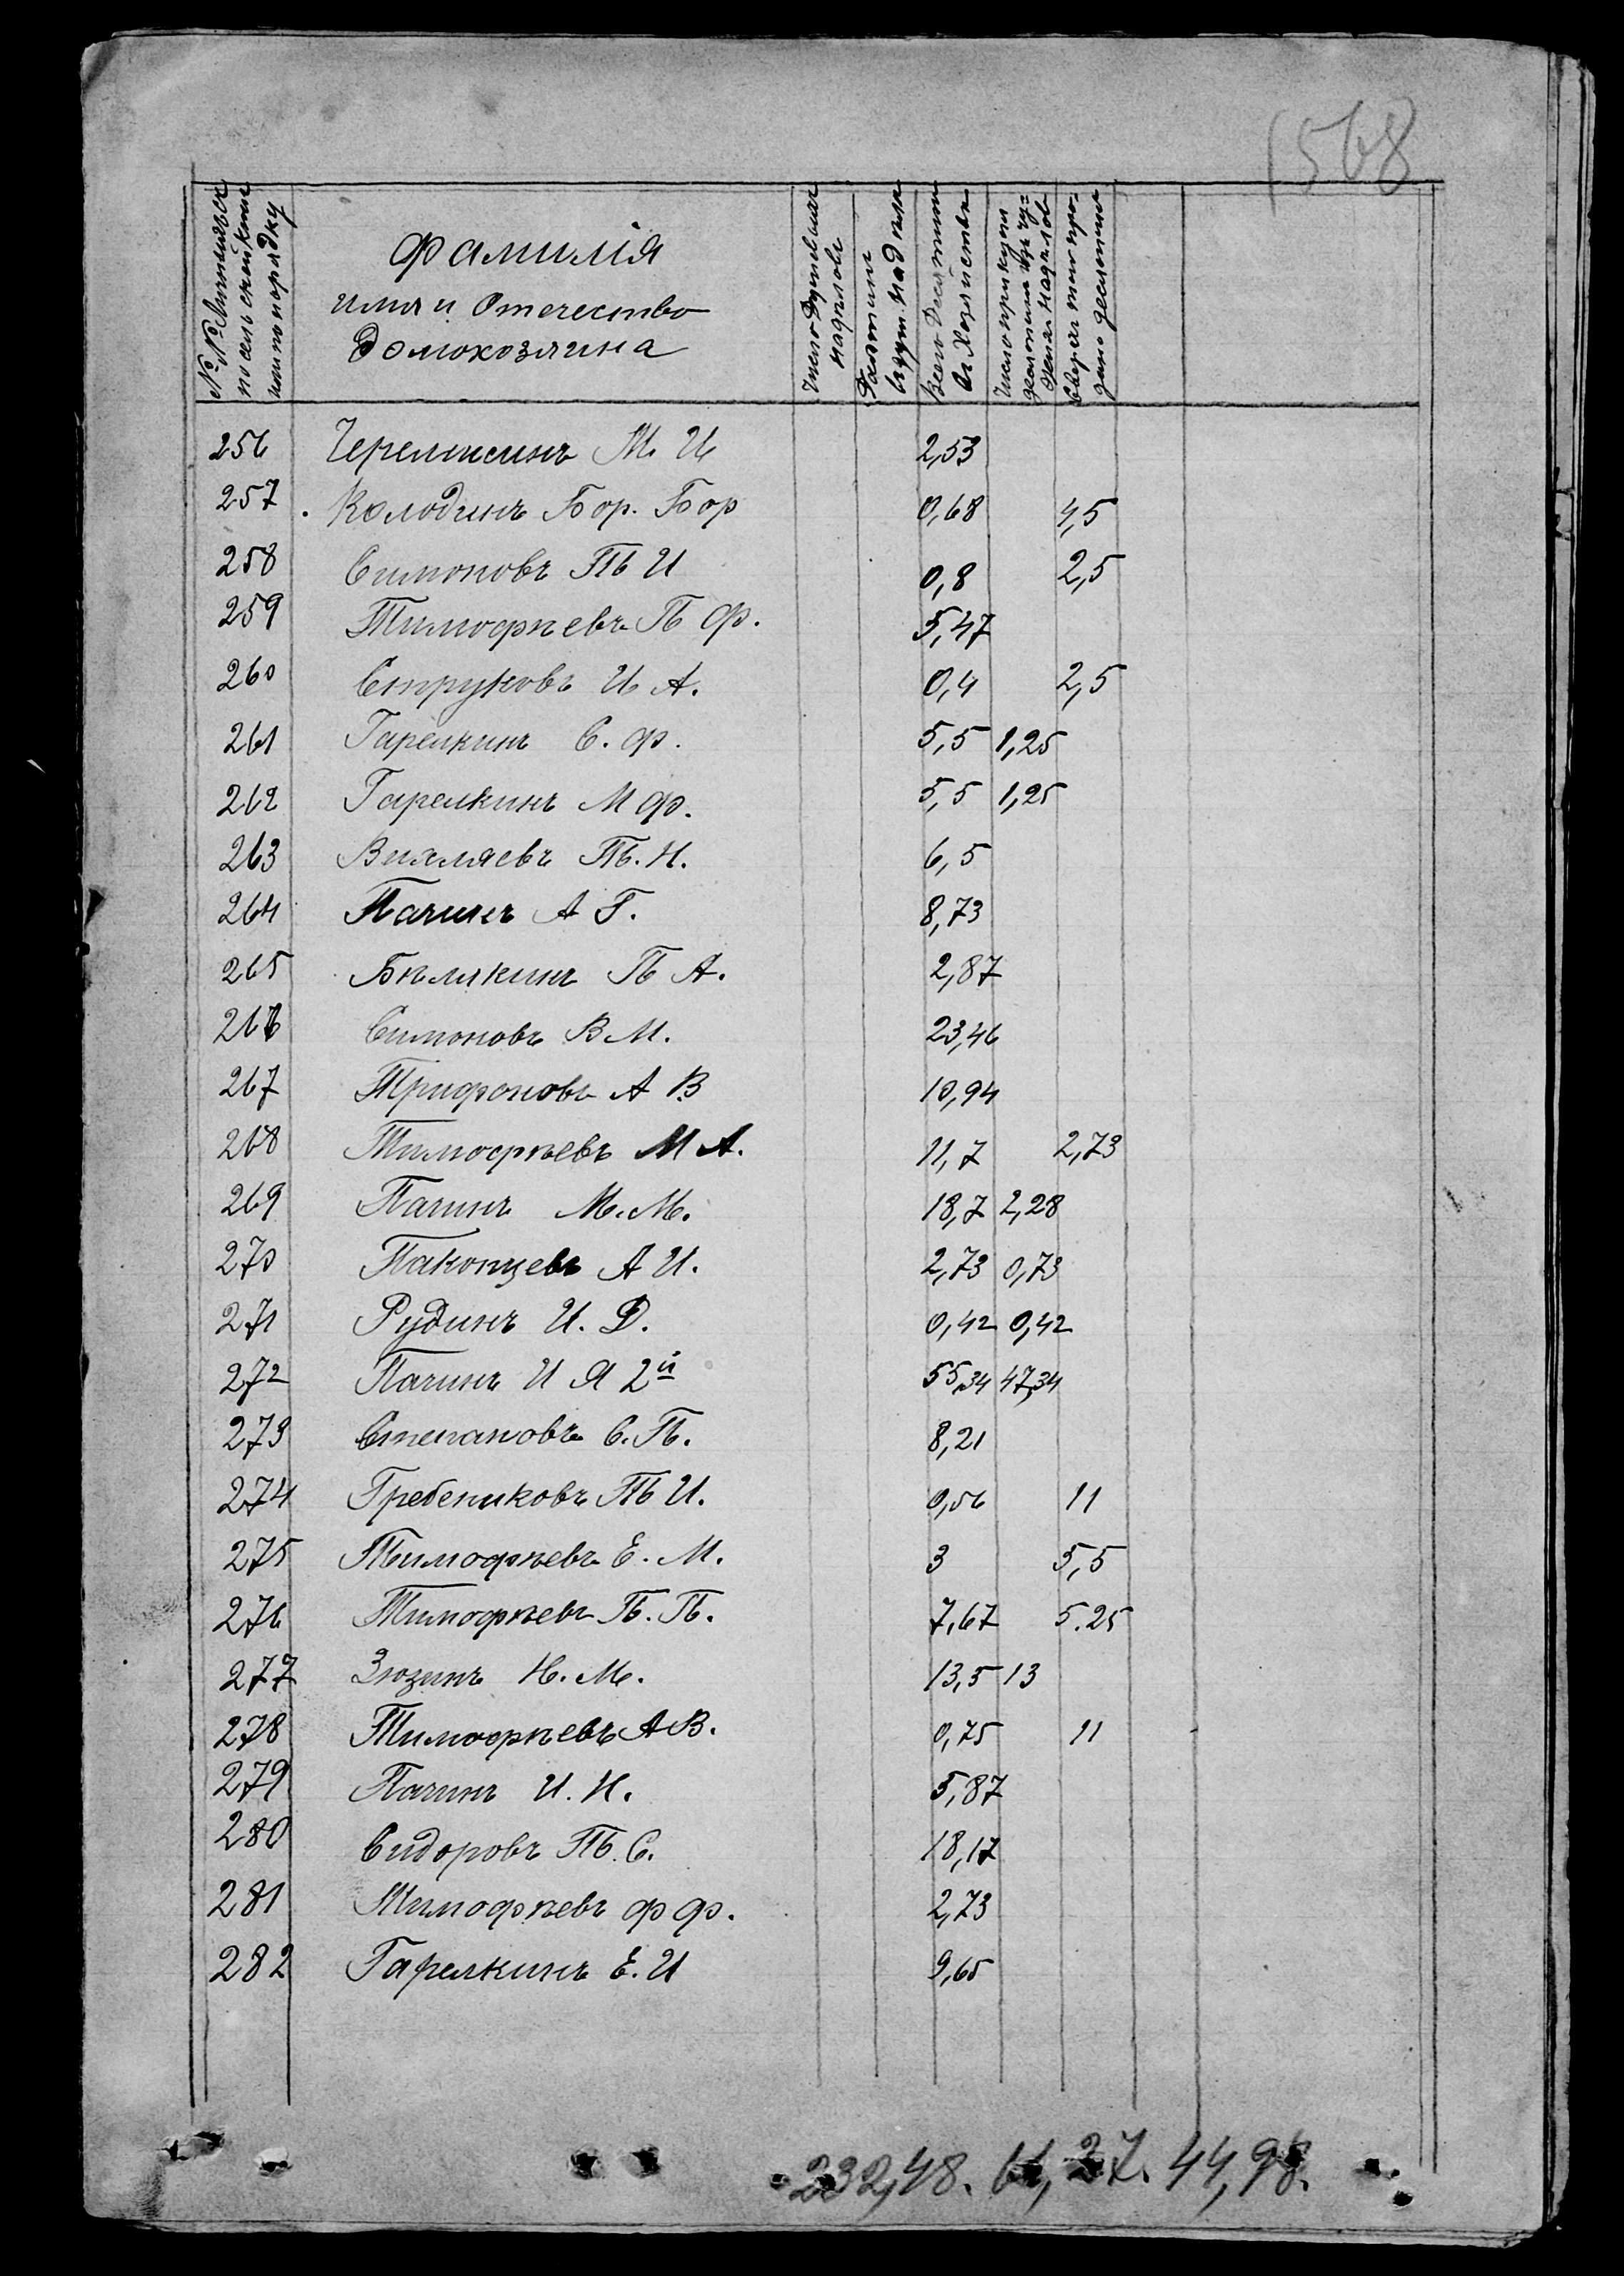 1568
№№ Личныхъ
по сель
ному порядку
Фамилія
имя и Отечество
домохозяина
Число Душевыхъ
надѣловъ
Десятинъ
въ душ. надѣлѣ
Всего Десятинъ
въ Хозяйствѣ
Число прикупл
десятинъ изъ чу=
жихъ надѣловъ
Сверхъ того про=
дано десятинъ
256 Черемисинъ М. И 2,53
257 Колодинъ Бор. Бор 0,68 4,5
258 Симоновъ П И 0,8 2,5
259 Тимофѣевъ П Ф. 5,47
260 Струковъ И А. 0,4 2,5
261 Гарелкинъ С. Ф. 5,5 1,25
262 Гарелкинъ М Ф. 5,5 1,25
263 Вихляевъ П. Н. 6,5
264 Пачинъ А Г. 8,73
265 Бѣлякинъ П А. 2,87
266 Симоновъ В М. 23,46
267 Трифоновъ А В 10,94
268 Тимофѣевъ М А. 11,7 2,73
269 Пачинъ М. М. 18,7 2,28
270 Паконцевъ А И. 2,73 0,73
271 Рудинъ И. Д. 0,42 0,42
272 Пачинъ И Я 2й 55,34 47,34
273 Степановъ С. П. 8,21
274 Гребениковъ П И. 0,56 11
275 Тимофѣевъ Е. М. 3 5,5
276 Тимофѣевъ П. П. 7,67 5.25
277 Зюзинъ Н. М. 13,5 13
278 Тимофѣевъ А В. 0,75 11
279 Пачинъ И. Н. 5,87
280 Сидоровъ П. С. 18,17
281 Тимофѣевъ Ф Ф. 2,73
282 Гарелкинъ Е. И 9,65
232,48. 66,27. 44,98.